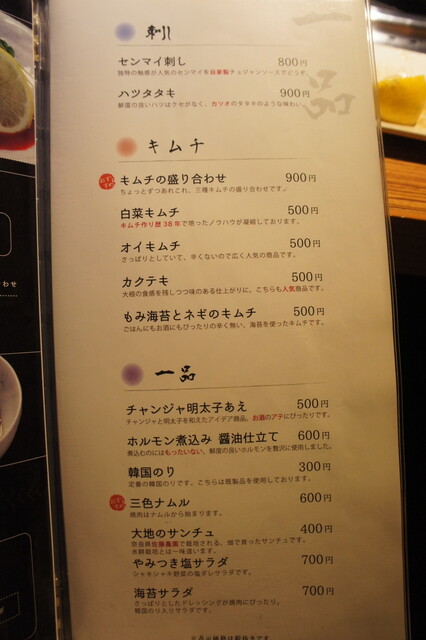 一品
刺し
センマイ刺し 800円
独特の触感が人気のセンマイを自家製チョジャンソースでどうぞ。
ハツタタキ 900円
鮮度の良いハツはクセがなく、カツオのタタキのような味わい。
キムチ
おすすめ キムチの盛り合わせ 900円
ちょっとずつあれこれ、三種キムチの盛り合わせです。
白菜キムチ 500円
キムチ作り歴38年で培ったノウハウが凝縮しております。
オイキムチ 500円
さっぱりとしていて、辛くないので広く人気の商品です。
カクテキ 500円
大根の食感を残しつつ味のある仕上がりに。こちらも人気商品です。
もみ海苔とネギのキムチ 500円
ごはんにもお酒にもぴったりの辛く無い、海苔を使ったキムチです。
一品
チャンジャ明太子あえ 500円
チャンジャと明太子を和えたアイデア商品。お酒のアテにぴったりです。
ホルモン煮込み 醤油仕立て 600円
煮込むのにはもったいない、鮮度の良いホルモンを贅沢に使用しました。
韓国のり 300円
定番の韓国のりです。こちらは既製品を使用しております。
おすすめ 三色ナムル 600円
焼肉はナムルから始まります。
大地のサンチュ 400円
奈良県佐藤農園で栽培される、畑で育ったサンチュです。
水耕栽培とは一味違います。
やみつき塩サラダ 700円
シャキシャキ野菜の塩ダレサラダです。
海苔サラダ 700円
さっぱりとしたドレッシングが焼肉にぴったり。
韓国のり入りサラダです。
※表示価格は税抜きです